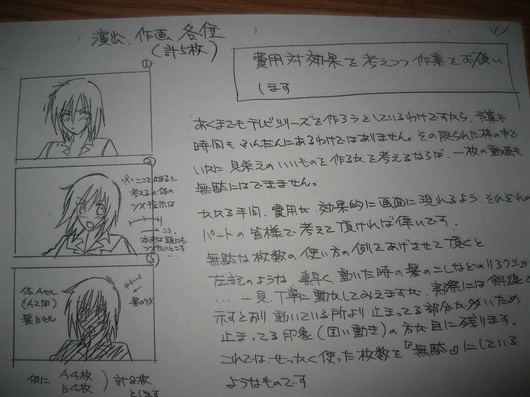 演出、作画 各位
(計5枚)
費用対効果を考えつつ作業をお願いします
①
②
③
体Aセル
(A2回)
髪Bセル
髪のツメ
例に
A4枚
B4枚
計8枚
とします
あくまでもテレビシリーズを作ろうとしているわけですから、予算も
時間もふんだんにあるわけではありません。その限られた枠の中で
いかに、見栄えのいいものを作るかを考えるならば、一枚の動画も
無駄にはできません。
かかる手間、費用が、効果的に画面に現れるよう それぞれの
パートの皆様で考えて頂ければ幸いです。
無駄な枚数の使い方の例であげさせて頂くと
左記のような 素早く動いた時の髪のこしなどのリアクション
…一見、丁寧に動かしてみえますが、実際には斜線で
示すとおり動いている所より止まってる部分が多いため
止まってる印象(固い動き)の方が目に残ります。
これでは、せっかく使った枚数を『無駄』にしている
ようなものです